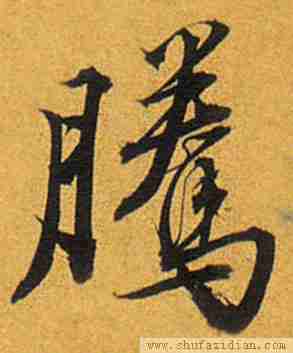 騰
www.shufazidian.com